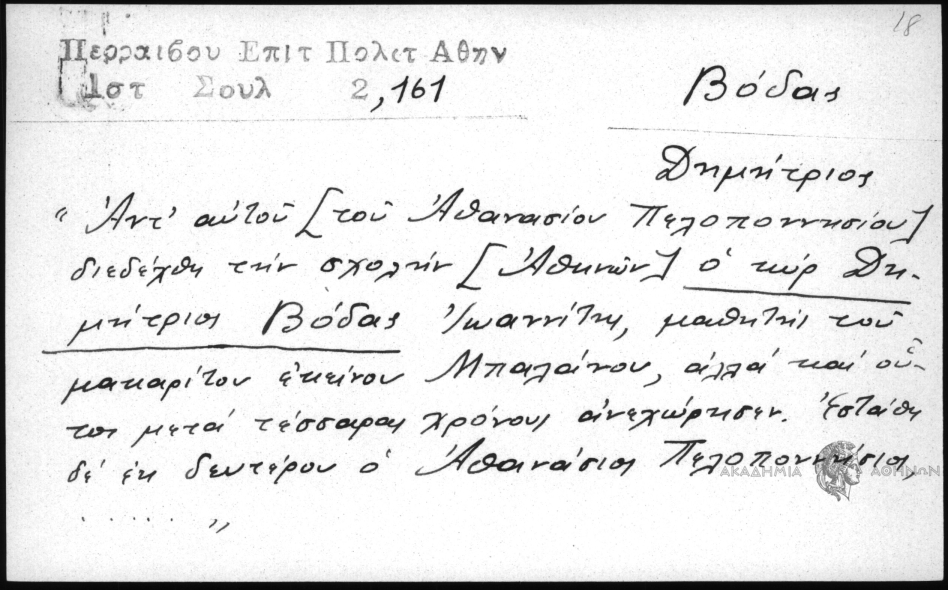 18
Περραιβου Επιτ Πολετ Αθην
Ιστ Σουλ 2,161
Βόδας
Δημήτριος
"Ἀντ' αὐτοῦ [τοῦ Ἀθανασίου Πελοποννησίου]
διεδέχθη τὴν σχολὴν [Ἀθηνῶν] ὁ κὺρ Δη-
μήτριος Βόδας Ἰωαννίτης, μαθητὴς τοῦ
μακαρίτου ἐκείνου Μπαλάνου, ἀλλὰ καὶ οὗ-
τος μετὰ τέσσαρας χρόνους ἀνεχώρησεν. Ἐστάθη
δὲ ἐκ δευτέρου ὁ Ἀθανάσιος Πελοποννήσιος,
. . . . . . "
ΑΚΑΔΗΜΙΑ ΑΘΗΝΩΝ